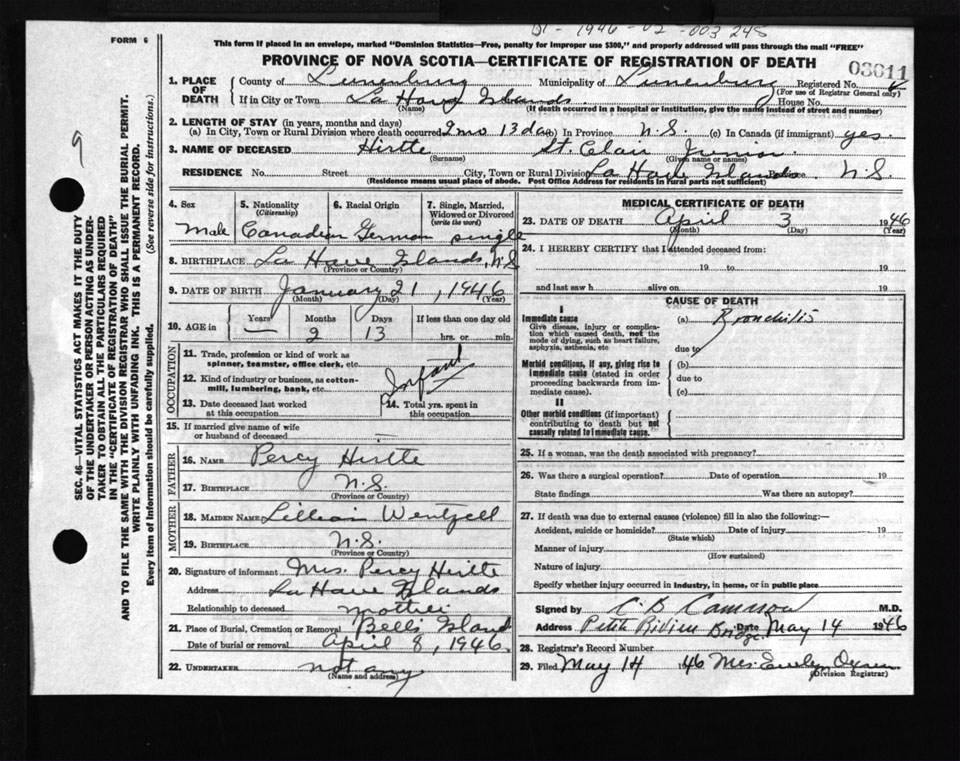 1946-02-003248
FORM 6
This form if placed in an envelope, marked "Dominion Statistics—Free, penalty for improper use $300," and properly addressed will pass through the mail "FREE"
PROVINCE OF NOVA SCOTIA—CERTIFICATE OF REGISTRATION OF DEATH
03011
1. PLACE OF DEATH
County of Lunenburg Municipality of Lunenburg Registered No.
(For use of Registrar General only)
If in City or Town La Have Islands House No.
(Name) (If death occurred in a hospital or institution, give the name instead of street and number)
2. LENGTH OF STAY (in years, months and days)
(a) In City, Town or Rural Division where death occurred 2 mo 13 da (b) In Province N.S. (c) In Canada (if immigrant) yes
3. NAME OF DECEASED Hirtle St. Clair Junior
(Surname) (Given name or names)
RESIDENCE No. Street City, Town or Rural Division La Have Islands Province N.S.
(Residence means usual place of abode. Post Office Address for residents in rural parts not sufficient)
4. Sex
Male
5. Nationality (Citizenship)
Canadian
6. Racial Origin
German
7. Single, Married, Widowed or Divorced (write the word)
single
8. BIRTHPLACE La Have Islands, N.S
(Province or Country)
9. DATE OF BIRTH January 21, 1946
(Month) (Day) (Year)
10. AGE in
Years Months Days If less than one day old
— 2 13 hrs. or min.
OCCUPATION
11. Trade, profession or kind of work as spinner, teamster, office clerk, etc
12. Kind of industry or business, as cotton-mill, lumbering, bank, etc
Infant
13. Date deceased last worked at this occupation
14. Total yrs. spent in this occupation
15. If married give name of wife or husband of deceased —
FATHER
16. NAME Percy Hirtle
17. BIRTHPLACE N.S.
(Province or Country)
MOTHER
18. MAIDEN NAME Lillian Wentzell
19. BIRTHPLACE N.S.
(Province or Country)
20. Signature of informant Mrs. Percy Hirtle
Address La Have Islands
Relationship to deceased mother
21. Place of Burial, Cremation or Removal Bells Island
Date of burial or removal April 8, 1946.
22. UNDERTAKER not any
(Name and address)
MEDICAL CERTIFICATE OF DEATH
23. DATE OF DEATH April 3 1946
(Month) (Day) (Year)
24. I HEREBY CERTIFY that I attended deceased from:
19 to 19
and last saw h alive on 19
CAUSE OF DEATH
I
Immediate cause
Give disease, injury or complication which caused death, not the mode of dying, such as heart failure, asphyxia, asthenia, etc
(a) Bronchitis
due to
Morbid conditions, if any, giving rise to immediate cause (stated in order proceeding backwards from immediate cause).
(b)
due to
(c)
II
Other morbid conditions (if important) contributing to death but not causally related to immediate cause.
25. If a woman, was the death associated with pregnancy?
26. Was there a surgical operation? Date of operation 19
State findings Was there an autopsy?
27. If death was due to external causes (violence) fill in also the following:—
Accident, suicide or homicide? Date of injury 19
(State which)
Manner of injury
(How sustained)
Nature of injury
Specify whether injury occurred in industry, in home, or in public place
Signed by C B Cameron M.D.
Address Petite Riviere Bridge Date May 14 1946
28. Registrar's Record Number
29. Filed May 14 46 Mrs. Evelyn
(Division Registrar)
SEC. 46—VITAL STATISTICS ACT MAKES IT THE DUTY
OF THE UNDERTAKER OR PERSON ACTING AS UNDER-
TAKER TO OBTAIN ALL THE PARTICULARS REQUIRED
IN THE "CERTIFICATE OF REGISTRATION OF DEATH"
AND TO FILE THE SAME WITH THE DIVISION REGISTRAR WHO SHALL ISSUE THE BURIAL PERMIT.
WRITE PLAINLY WITH UNFADING INK. THIS IS A PERMANENT RECORD.
Every item of information should be carefully supplied. (See reverse side for instructions.)
9